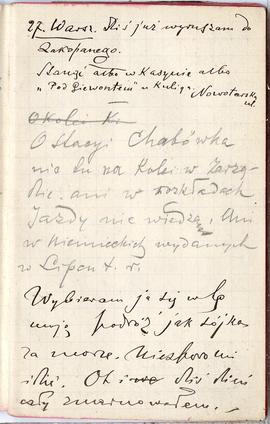 27. Warsz. Dziś już wyruszam do
Zakopanego.
Stanąć albo w Kasynie albo
"Pod Giewontem" u Kulig. Nowotarska
ul.
Okolei Kr
O Stacyi Chabówka
nic tu na Kolei w Zarzą-
dzie. ani w rozkładach
Jazdy nie wiedzą, Ani
w Niemieckich wydanych
w Lipcu t. r.
Wybieram ja się w tę
moją podróż jak sójka
za morze. Niesporo mi
idzie. Ot i dziś dzień
cały zmarnowałem.